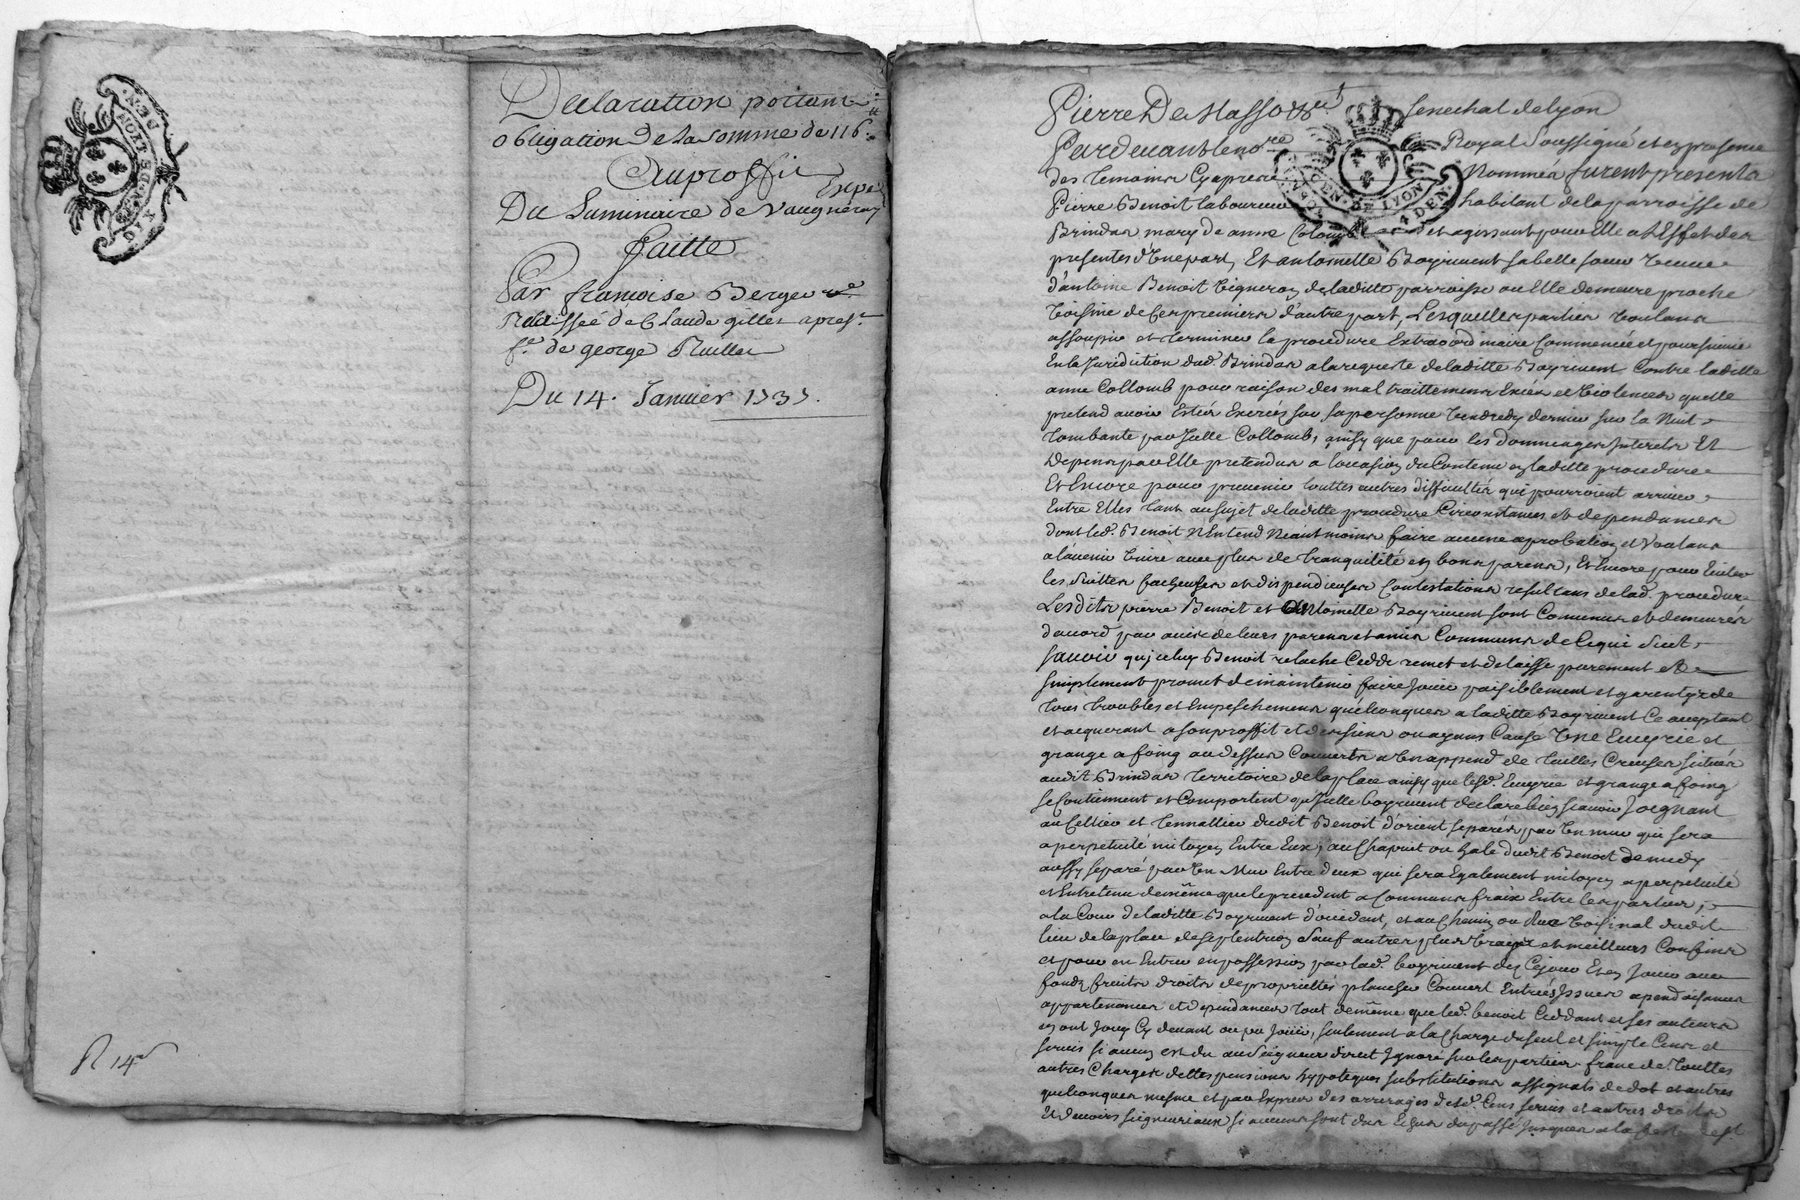 GEN. DE LYON
MOY. PAP. DEUX
Declaration portant
obligation de la somme de 116 ll
Au proffit
Expé
Du Luminaire de Vaugneray
faitte
Par francoise Berger ve
delaissée de Claude gilles apres
fe de george Ruillas
Du 14. Janvier 1737.
R 14s
Pierre De Masso Senechal de lyon
GEN. DE LYON 4 DEN.
Pardevant le nore Royal Soussigné et en presence
des temoins cy apres Nommés furent presents
Pierre Benoit laboureur habitant de la parroisse de
Brindas mary de anne Colomb et agissant pour Elle a l'Effet des
presentes d'Une part, Et antoinette Boyriuent sa belle soeur veuve
d'antoine Benoit vigneron de laditte parroisse ou Elle demeure proche
voisine de ces premiers d'autre part, Lesquelles parties voulans
assoupir et terminer la procedure Extraordinaire Commencée et poursuivie
En la Juridiction dud. Brindas a la requeste de laditte Boyriuent Contre laditte
anne Collomb pour raison des mal traittemens Excés et violences quelle
pretend avoir Estés Exercés sur sa personne vendredy dernier sur la Nuit
tombante par Icelle Collomb, ainsy que pour les dommages Interets Et
depens par Elle pretendus a l'occasion du Contenu en laditte procedure
Et Encore pour prevenir touttes autres difficultés qui pourroient arriver
Entre Elles tant au sujet de laditte procedure Circonstances et dependances
dont led. Benoit n'Entend Neantmoins faire aucune aprobation et Voulans
a l'avenir vivre avec plus de tranquilité en bons parens, Et Encore pour Eviter
les suittes facheuses et dispendieuses Contestations resultans de lad. procedure
Lesdits pierre Benoit et Antoinette Boyriuent sont Convenus et demeurés
d'accord par avis de leurs parens et amis Communs de Ce qui Suit,
Savoir qu'iceluy Benoit relache Cedde remet et delaisse purement et
simplement promet de maintenir faire Jouir paisiblement et garentyr de
tous troubles et Empeschemens quelconques a laditte Boyriuent Ce acceptant
et acquerant a son proffit et des siens ou ayans Cause Une Ecuyrie et
grange a foing au dessus Couverts a Un append de tuilles Creuses situés
audit Brindas territoire de la place ainsy que lesd. Ecuyrie et grange a foing
se Contiennent et Comportent qu'Icelle boyriuent declare bien scavoir Joignant
au Cellier et tennallier dudit Benoit d'orient separés par Un mur qui sera
a perpetuité mitoyen Entre Eux, au Chapuit ou hale dudit Benoit de midy
aussy separé par Un Mur Entre deux qui sera Egalement mitoyen a perpetuité
et Entretenu de même que le precedent a Communs fraix Entre les parties,
a la Cour de laditte Boyriuent d'occident, et au Chemin ou Rue Voisinal dudit
lieu de la place de septentrion Sauf autres plus vrays et meilleurs Confins
et pour en Entrer en possession par lad. boyriuent dez Cejour Et en Jouir avec
fonds fruits droits de proprietés plancher Couvert Entrées Issues apendisances
appartenances et dependances tout de même que led. benoit Ceddant et ses auteurs
en ont Jouy Cy devant ou pu Jouir, seulement a la Charge du seul et simple Cens et
servis si aucun est du au Seigneur direct Ignoré par les parties franc de touttes
autres Charges dettes pensions hypoteques substitutions assignats de dot et autres
quelconques mesme et par Exprés des arrerages desd. Cens servis et autres droits
Et devoirs seigneuriaux si aucuns sont dus Echus du passé Jusques a la feste